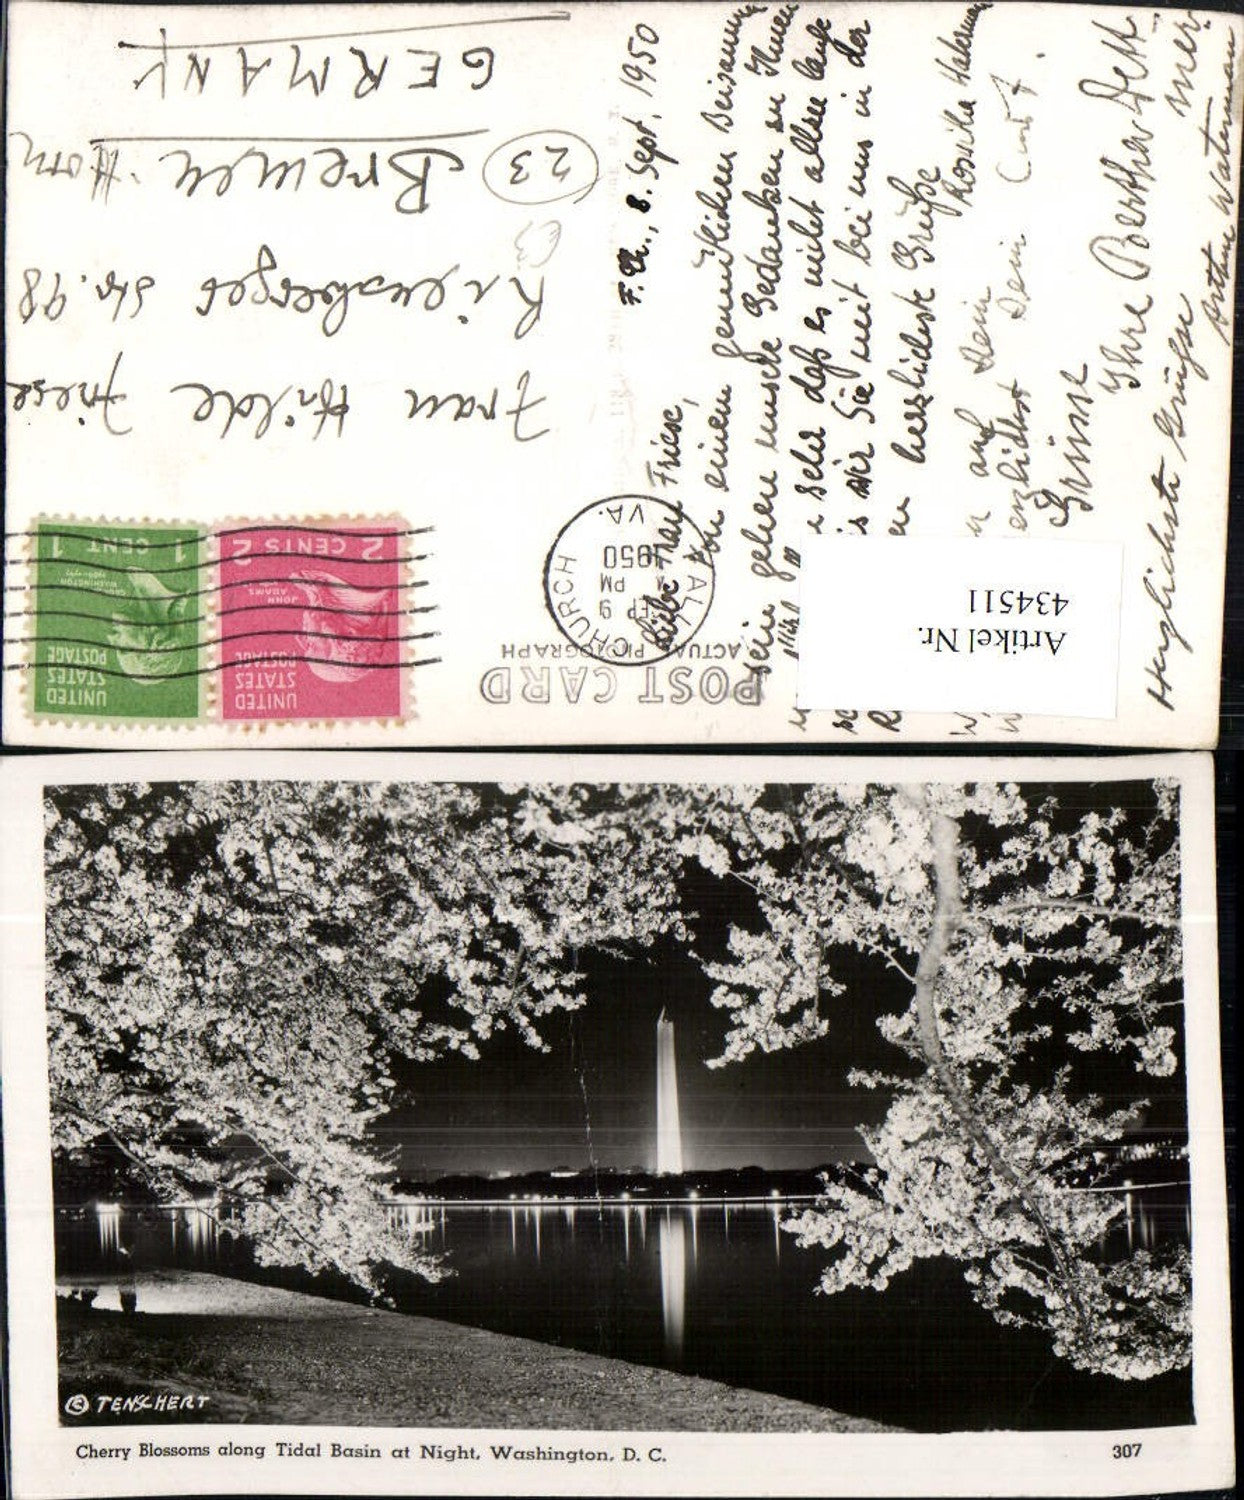 POST CARD
ACTUAL PHOTOGRAPH
UNITED
STATES
POSTAGE
JOHN
ADAMS
2 CENTS 2
UNITED
STATES
POSTAGE
GEORGE
WASHINGTON
1 CENT 1
FALLS CHURCH
SEP 9
PM
1950
VA.
Frau Hilde Friese
Riensberger Str. 98
(23) Bremen Horn
GERMANY
F. Ch., 8. Sept. 1950
Liebe Frau Friese,
Von einem gemütlichen Beisammen
sein gehen unsere Gedanken zu Ihnen
sehr daß es nicht allzu lange
bis wir Sie mit bei uns in der
herzlichste Grüße
auf Dein
herzlichst Dein Curt.
Grüsse
Ihre Bertha Dett
mer
Herzlichste Grüsse
Arthur Waterman
Artikel Nr.
434511
© TENSCHERT
Cherry Blossoms along Tidal Basin at Night, Washington, D. C.
307